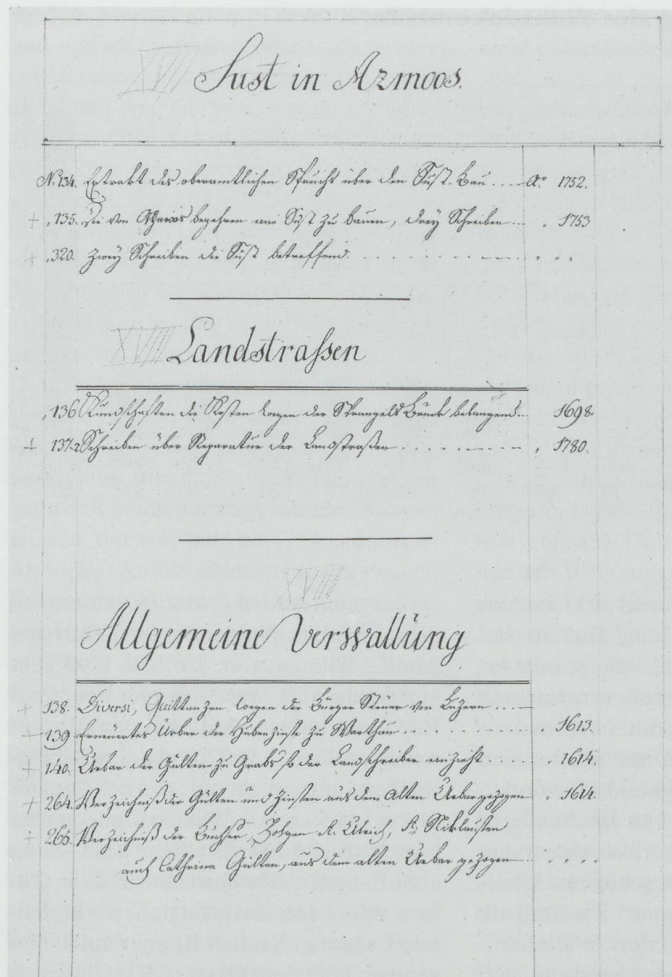 XVIII Sust in Azmoos.
N. 134. Extrakt des oberamtlichen Spruchs über den Sust-Bau .... Aº 1752.
+ „ 135. Die von Azmoos begehren eine Sust zu bauen, drey Schreiben ... „ 1753
+ „ 320. Zwey Schreiben die Sust betreffend.
XVIII Landstraſsen
„ 136 Kundschaften die Kosten wegen der belangend... 1698.
+ 137. 2 Schreiben über Reparatur der Landstraßen ........ „ 1780.
XVIII
Allgemeine Verwaltung
+ 138. Diversi, Quittanzen wegen der Steuer von Luzern ....
+ 139 Erneuerter Ueber der Hubenzinse zu Warthau ........ 1613.
+ 140. Ueber der Gülten zu Grabs so der Landschreiber einzieht ..... 1614.
+ 264. Verzeichniß der Gülten und Zinsen aus dem alten Ueber gezogen „ 1614.
+ 265. Verzeichniß der Bücher, Ulrich, St. Niklausen
auch Cathrina Gülten, aus dem alten Ueber gezogen ....